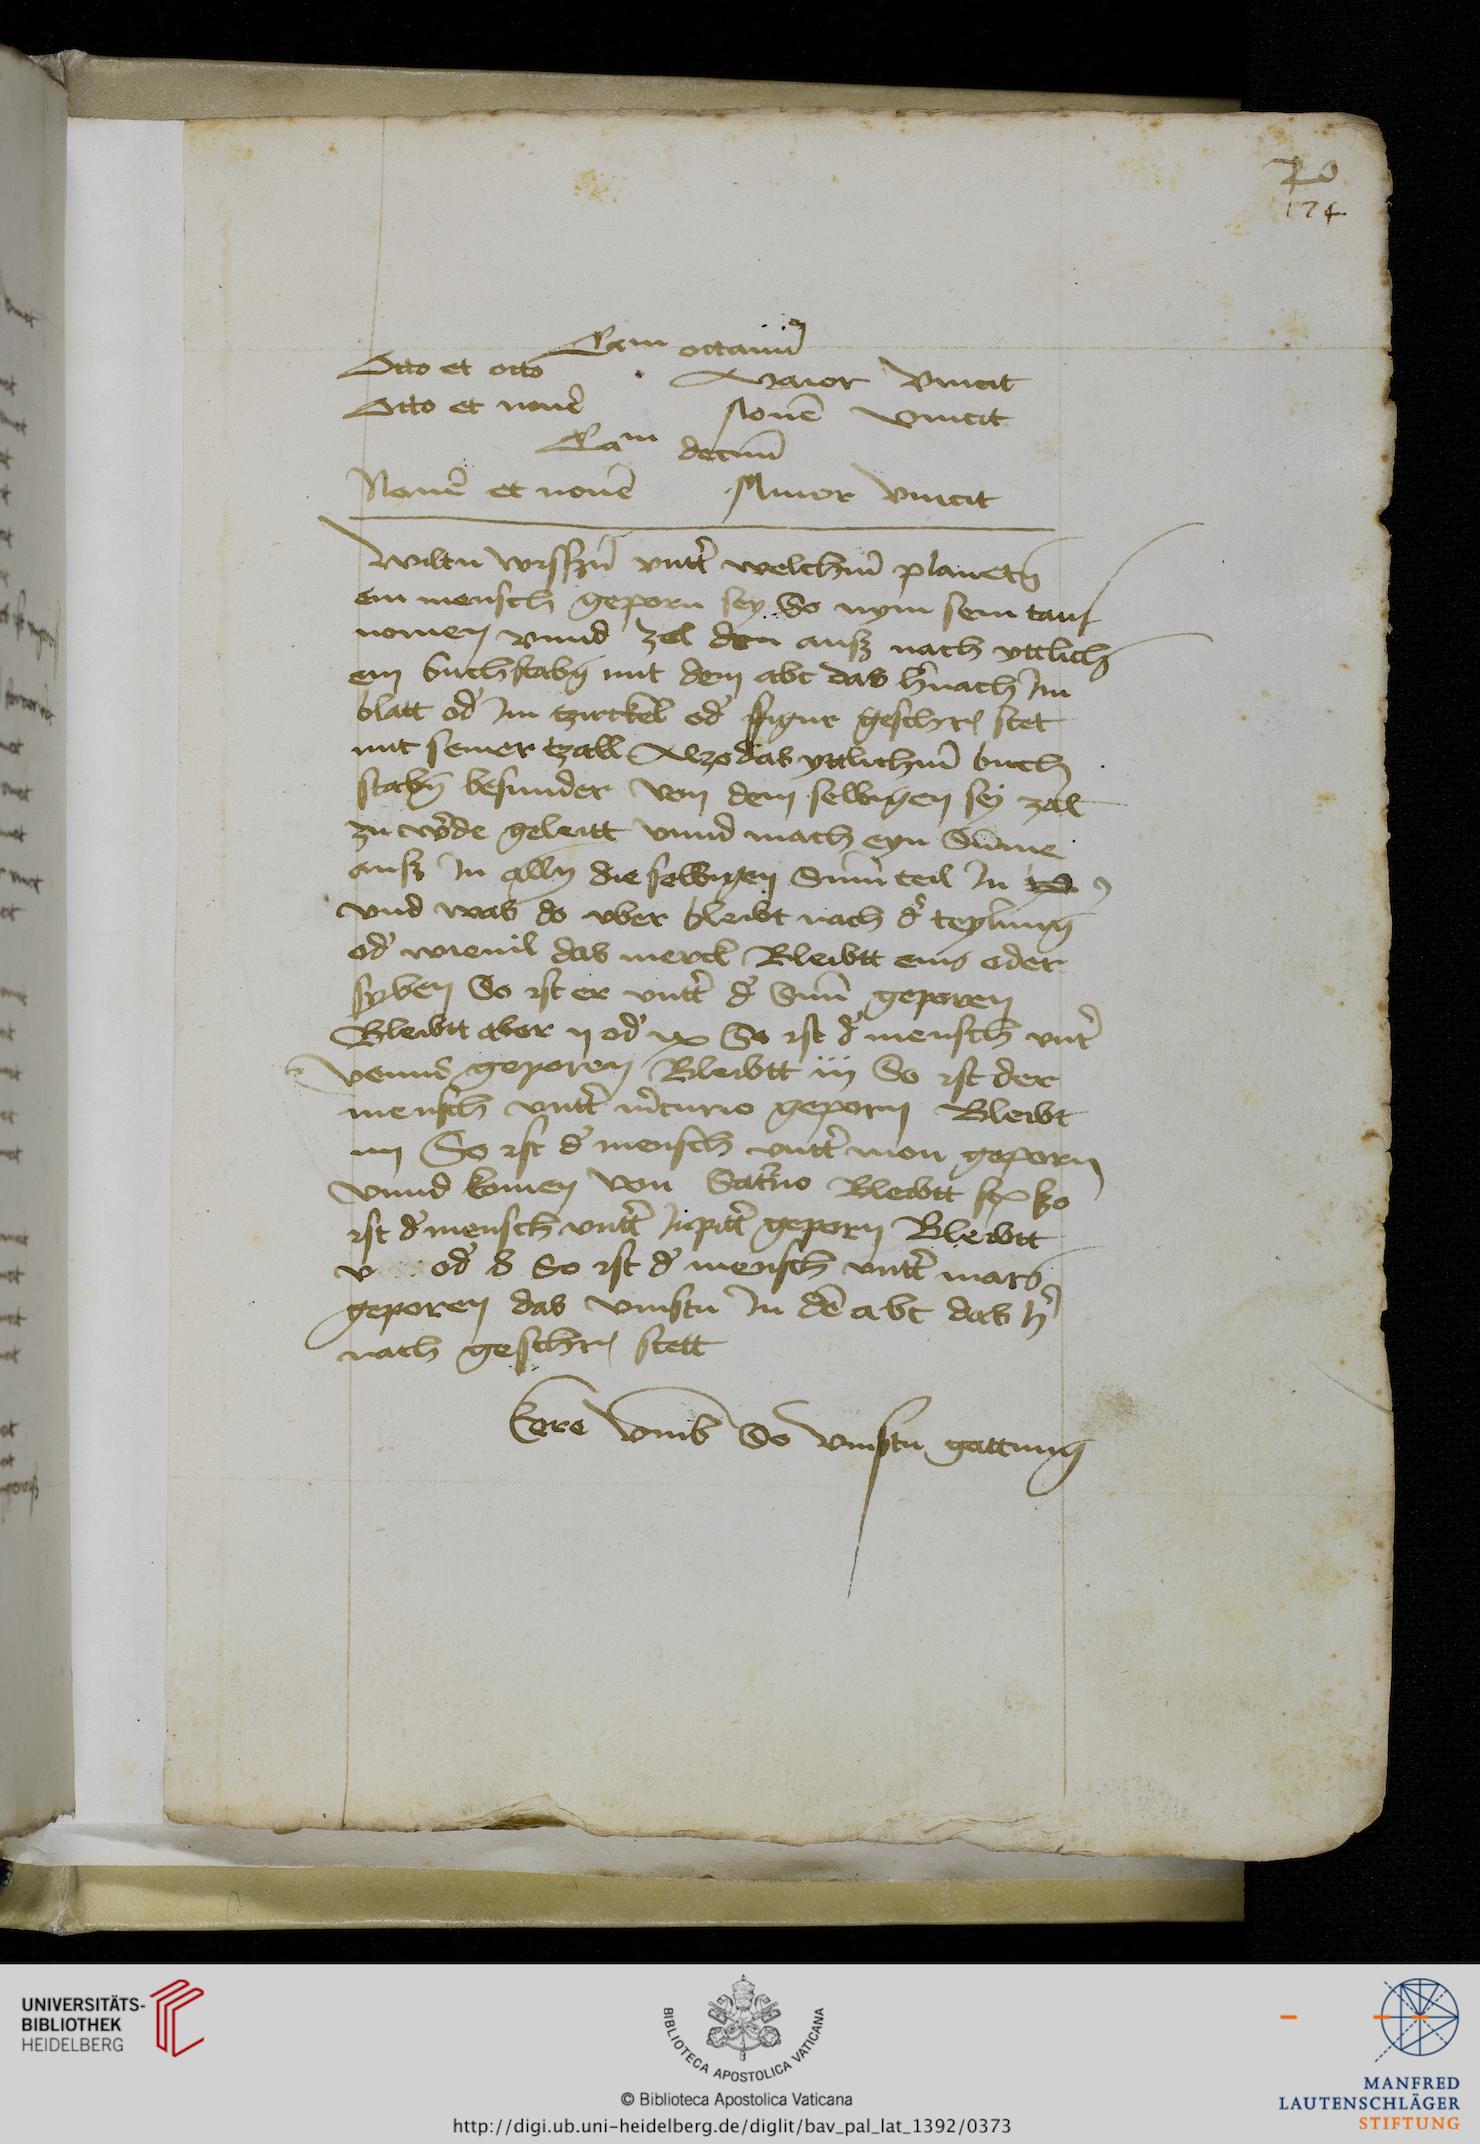 70
174
Cam octauū
Octo et octo Maior Vincit
Octo et nouē Nouē vincit
Cam decimū
Nouē et nouē Minor vincit
Wiltu wisszn̄ vntt̄ welchm̄ planetn̄
ein mensch geporn sey So nym sein tauf
nomen vnnd zel den ausz nach yttlich
em buchstabn̄ mit dem abc das h̄nach im
blatt od̄ im tzirckel od̄ figur geschr̄ stet
mit seiner tzall Alzo das yttlichm̄ buch
stabn̄ besunder von dem selbigen sy zal
zu w̄de geleitt vnnd mach eyn Sūme
ausz in alln̄ die selbigen Sum̄ teil in 9
vnd was do vber bleibt nach d̄ teylung
od̄ wieuil das merck Bleibtt eins oder
syben So ist er vntt̄ d̄ Sun̄ geporen
Bleibtt aber ij od̄ ix So ist d̄ mensch vnt̄
venus geporen Bleibtt iij So ist der
mensch vntt̄ m̄curio geporn Bleibt
iiij So ist d̄ mensch vntt̄ mon geporn
vnnd komen von Sat̄no Bleibtt sex szo
ist d̄ mensch vntt̄ Jupitt̄ geporn Bleibtt
v od̄ 8 So ist d̄ mensch vntt̄ mars
geporen das vinstu in dē abc das h̄
nach geschr̄ stett
Kere vmb So vinstu gattung
UNIVERSITÄTS-
BIBLIOTHEK
HEIDELBERG
BIBLIOTECA APOSTOLICA VATICANA
© Biblioteca Apostolica Vaticana
http://digi.ub.uni-heidelberg.de/diglit/bav_pal_lat_1392/0373
MANFRED
LAUTENSCHLÄGER
STIFTUNG